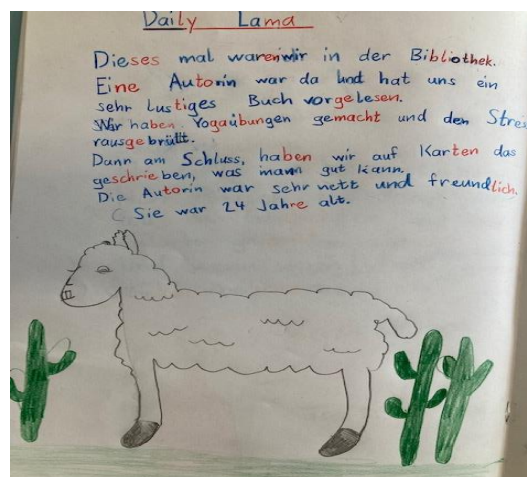 Daily Lama
Dieses mal waren wir in der Bibliothek.
Eine Autorin war da und hat uns ein
sehr lustiges Buch vorgelesen.
Wir haben Yogaübungen gemacht und den Stres
rausgebrüllt.
Dann am Schluss, haben wir auf Karten das
geschrieben, was mann gut kann.
Die Autorin war sehr nett und freundlich.
Sie war 24 Jahre alt.